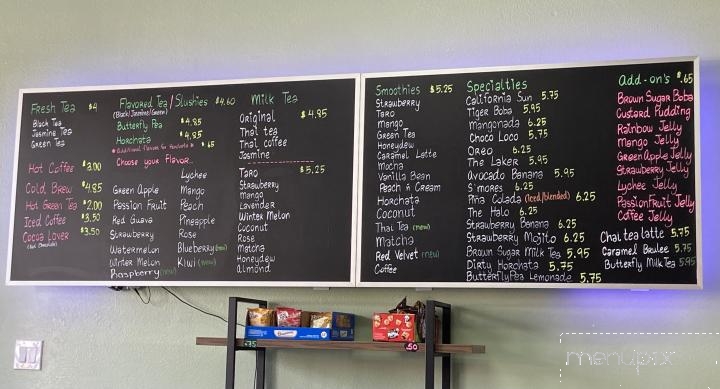 Fresh Tea $4
Black Tea
Jasmine Tea
Green Tea
Hot Coffee $3.00
Cold Brew $4.85
Hot Green Tea $2.00
Iced Coffee $3.50
Cocoa Lover $3.50
Flavored Tea/Slushies $4.60
(Black/Jasmine/Green)
Butterfly Pea $4.85
Horchata $4.85
Choose your Flavor..
Lychee
Green Apple Mango
Passion Fruit Peach
Red Guava Pineapple
Strawberry Rose
Watermelon Blueberry (new)
Winter Melon Kiwi (new)
Raspberry (new)
Milk Tea
Original $4.95
Thai tea
Thai coffee
Jasmine
Taro $5.25
Strawberry
Mango
Lavender
Winter Melon
Coconut
Rose
Matcha
Honeydew
almond
Smoothies $5.25
Strawberry
Taro
Mango
Green Tea
Honeydew
Caramel Latte
Mocha
Vanilla Bean
Peach n Cream
Horchata
Coconut
Thai Tea (new)
Matcha
Red Velvet (new)
Coffee
Specialties
California Sun 5.75
Tiger Boba 5.95
Mangonada 6.25
Choco Loco 5.75
Oreo 6.25
The Laker 5.95
Avocado Banana 5.95
S'mores 6.25
Piña Colada (Iced/blended) 6.25
The Halo 6.25
Strawberry Banana 6.25
Strawberry Mojito 6.25
Brown Sugar Milk Tea 5.95
Dirty Horchata 5.75
Butterfly Pea Lemonade 5.75
add-on's $.65
Brown Sugar Boba
Custard Pudding
Rainbow Jelly
Mango Jelly
Green Apple Jelly
Strawberry Jelly
Lychee Jelly
Passionfruit Jelly
Coffee Jelly
Chai tea latte 5.75
Caramel Brulee 5.75
Butterfly Milk Tea 5.95
.75
.50
menupix